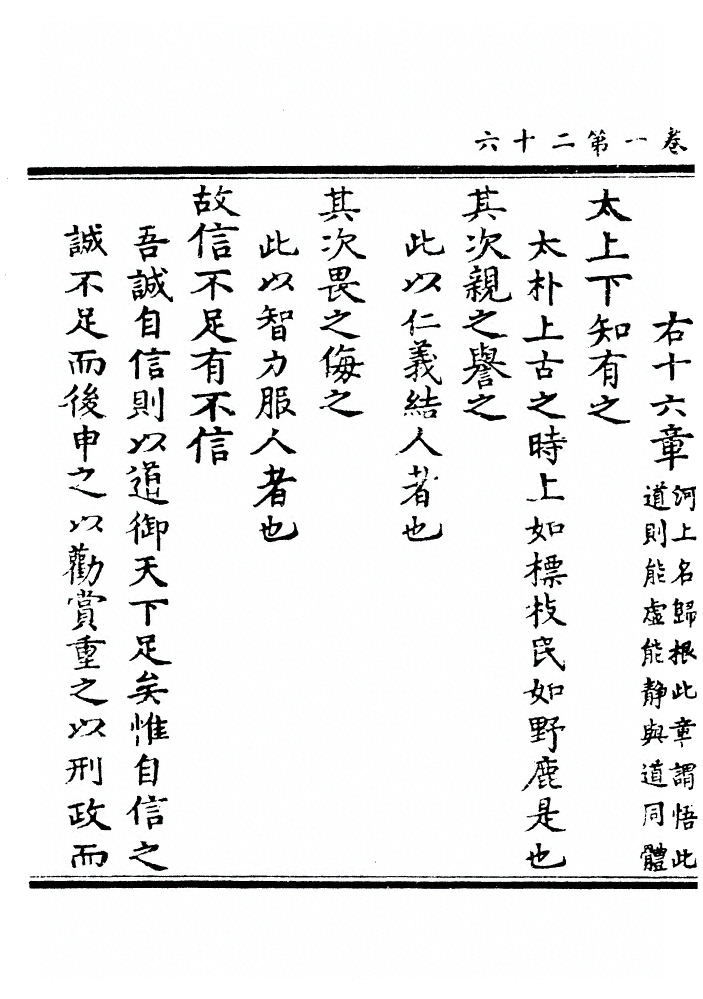 卷一第二十六
右十六章河上名歸根此章謂悟此
道則能虛能靜與道同體
太上下知有之
太朴上古之時上如標枝民如野鹿是也
其次親之譽之
此以仁義結人者也
其次畏之侮之
此以智力服人者也
故信不足有不信
吾誠自信則以道御天下足矣惟自信之
誠不足而後申之以勸賞重之以刑政而